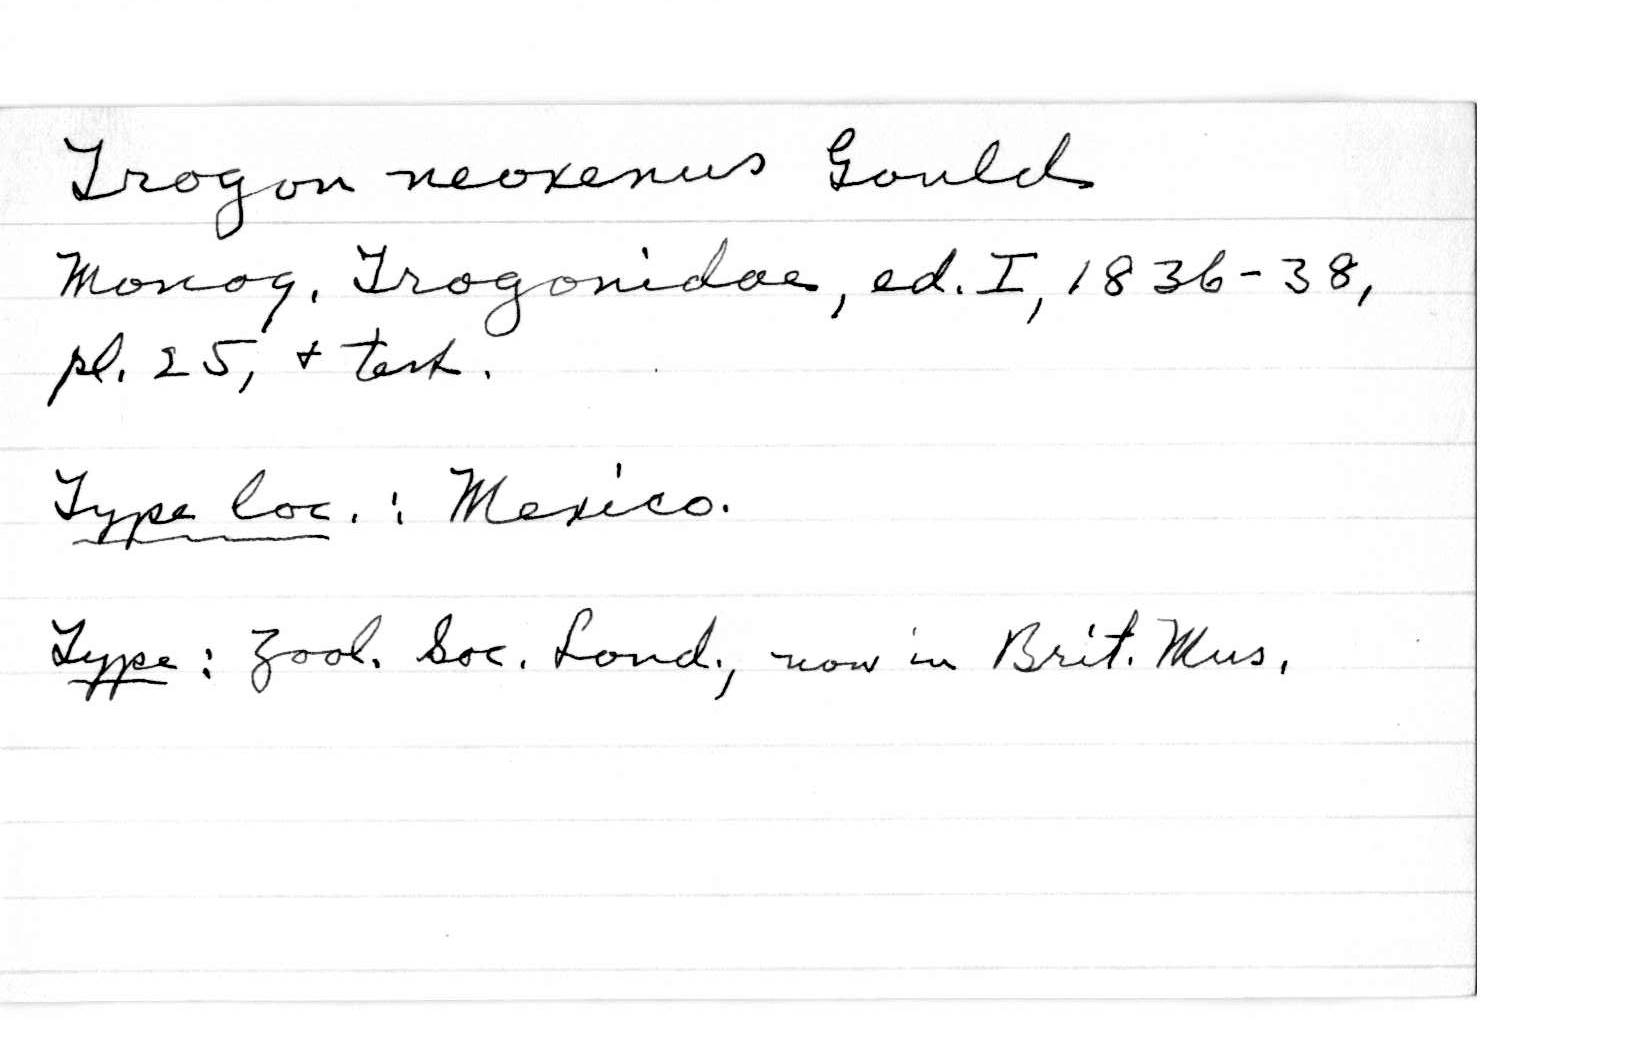 Trogon neoxenus Gould
Monog. Trogonidae, ed. I, 1836-38,
pl. 25, + text.
Type loc.: Mexico.
Type: Zool. Soc. Lond., now in Brit. Mus.